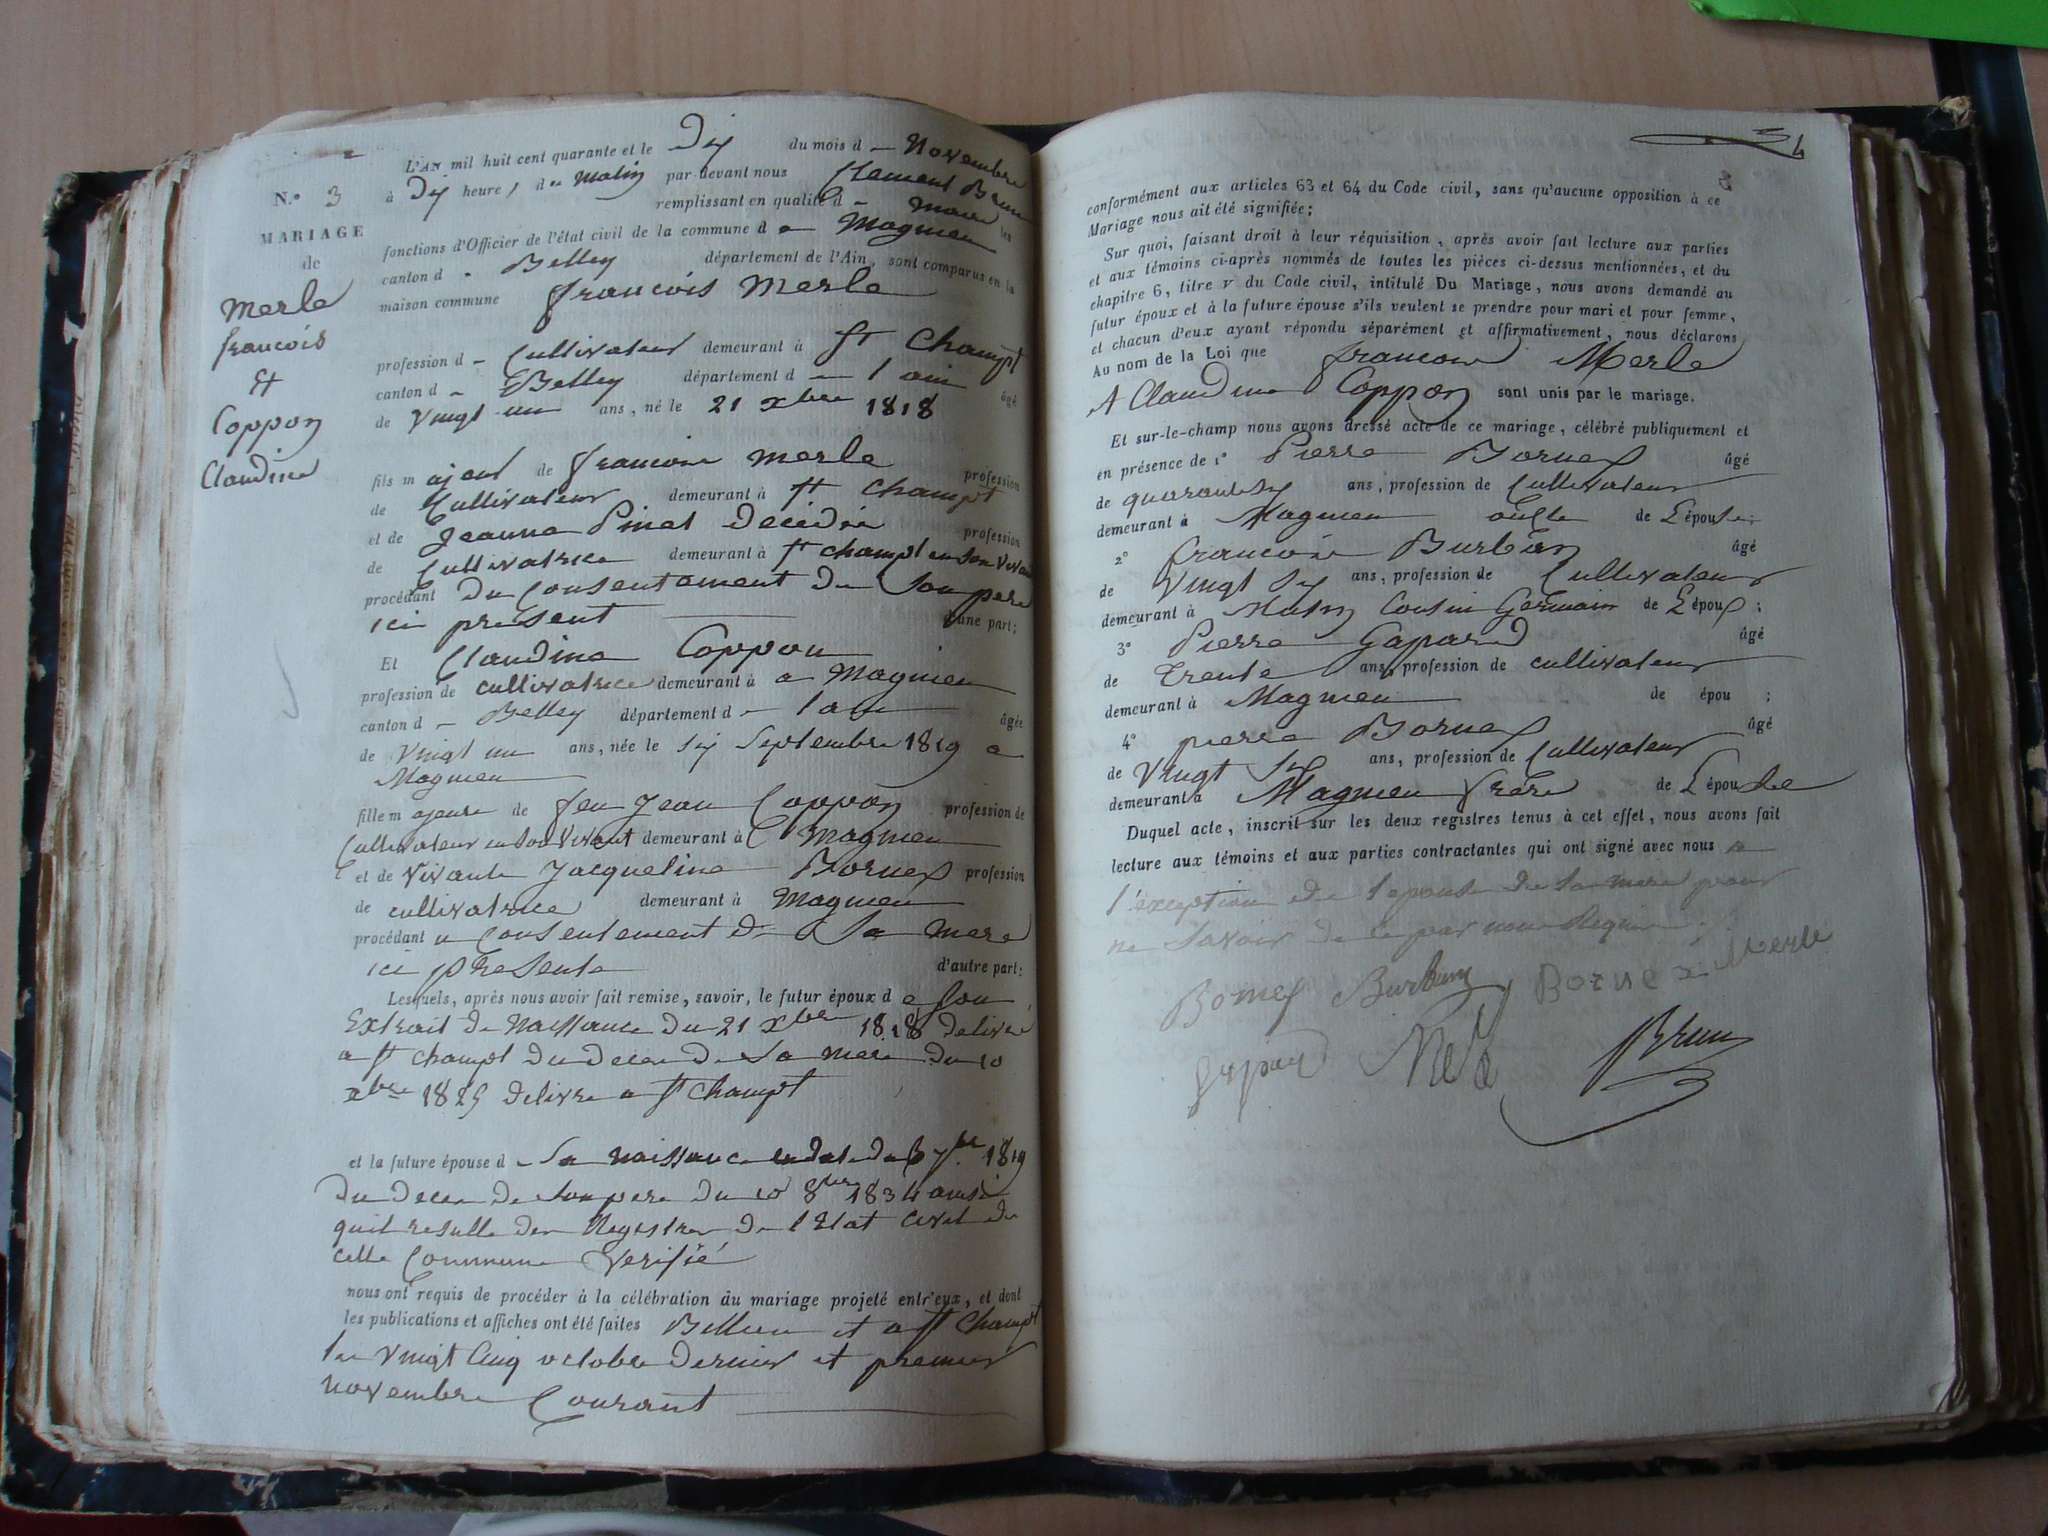 L'AN mil huit cent quarante et le Dix du mois d - Novembre
N.° 3 à Dix heures du Matin par devant nous Clement Brun
remplissant en qualité d - Maire les
MARIAGE fonctions d'Officier de l'état civil de la commune d - Magnieu
de canton d - Belley département de l'Ain, sont comparus en la
maison commune francois Merle
Merle
francois
profession d - Cultivateur demeurant à St Champt
Et
canton d - Belley département d - l'ain âgé
Coppon
de Vingt un ans, né le 21 Xbre 1818
Claudine
fils majeur de francois merle profession
de Cultivateur demeurant à St Champt
et de Jeanne Pinet Decédée profession
de Cultivatrice demeurant à St Champt en son Vivant
procédant Du Consentement De Son pere
ici present d'une part;
Et Claudine Coppon
profession de cultivatrice demeurant à a Magnieu
canton d - Belley département d - l'ain âgée
de Vingt un ans, née le Six Septembre 1819 a
Magnieu
fille majeure de feu Jean Coppon profession de
Cultivateur en son Vivant demeurant à Magnieu
et de Vivante Jacqueline Bornex profession
de cultivatrice demeurant à Magnieu
procédant u Consentement de Sa mere
ici presente d'autre part;
Lesquels, après nous avoir fait remise, savoir, le futur époux d e Son
Extrait de Naissance Du 21 Xbre 1818 delivré
a St Champt du deces de Sa mere du 10
xbre 1825 delivré a St Champt
et la future épouse d - Sa Naissance en date du 6 7bre 1819
Du Deces de Son pere du 10 8bre 1834 ainsi
quil resulte des Registres de l'Etat Civil de
cette Commune Verifié
nous ont requis de procéder à la célébration du mariage projeté entr'eux, et dont
les publications et affiches ont été faites et a St Champt
les Vingt Cinq octobre Dernier et premier
novembre Courant
4
conformément aux articles 63 et 64 du Code civil, sans qu'aucune opposition à ce
Mariage nous ait été signifiée;
Sur quoi, faisant droit à leur réquisition, après avoir fait lecture aux parties
et aux témoins ci-après nommés de toutes les pièces ci-dessus mentionnées, et du
chapitre 6, titre v du Code civil, intitulé Du Mariage, nous avons demandé au
futur époux et à la future épouse s'ils veulent se prendre pour mari et pour femme,
et chacun d'eux ayant répondu séparément et affirmativement, nous déclarons
Au nom de la Loi que francois Merle
A Claudine Coppon sont unis par le mariage.
Et sur-le-champ nous avons dressé acte de ce mariage, célébré publiquement et
en présence de 1° Pierre Bornex âgé
de quarante Six ans, profession de Cultivateur
demeurant à Magnieu de L'épouse;
2° francois Burban âgé
de Vingt Six ans, profession de Cultivateur
demeurant à Cousin Germain de L'époux;
3° Pierre Gapard âgé
de Trente ans, profession de cultivateur
demeurant à Magnieu de épou ;
4° pierre Bornex âgé
de Vingt Six ans, profession de Cultivateur
demeurant à Magnieu frère de L'épouse
Duquel acte, inscrit sur les deux registres tenus à cet effet, nous avons fait
lecture aux témoins et aux parties contractantes qui ont signé avec nous a
l'éxception de l'epouse de Sa mere pour
ne Savoir de ce par nous Requis.
Bornex Burban Bornex Merle
Gapard Merle Brun